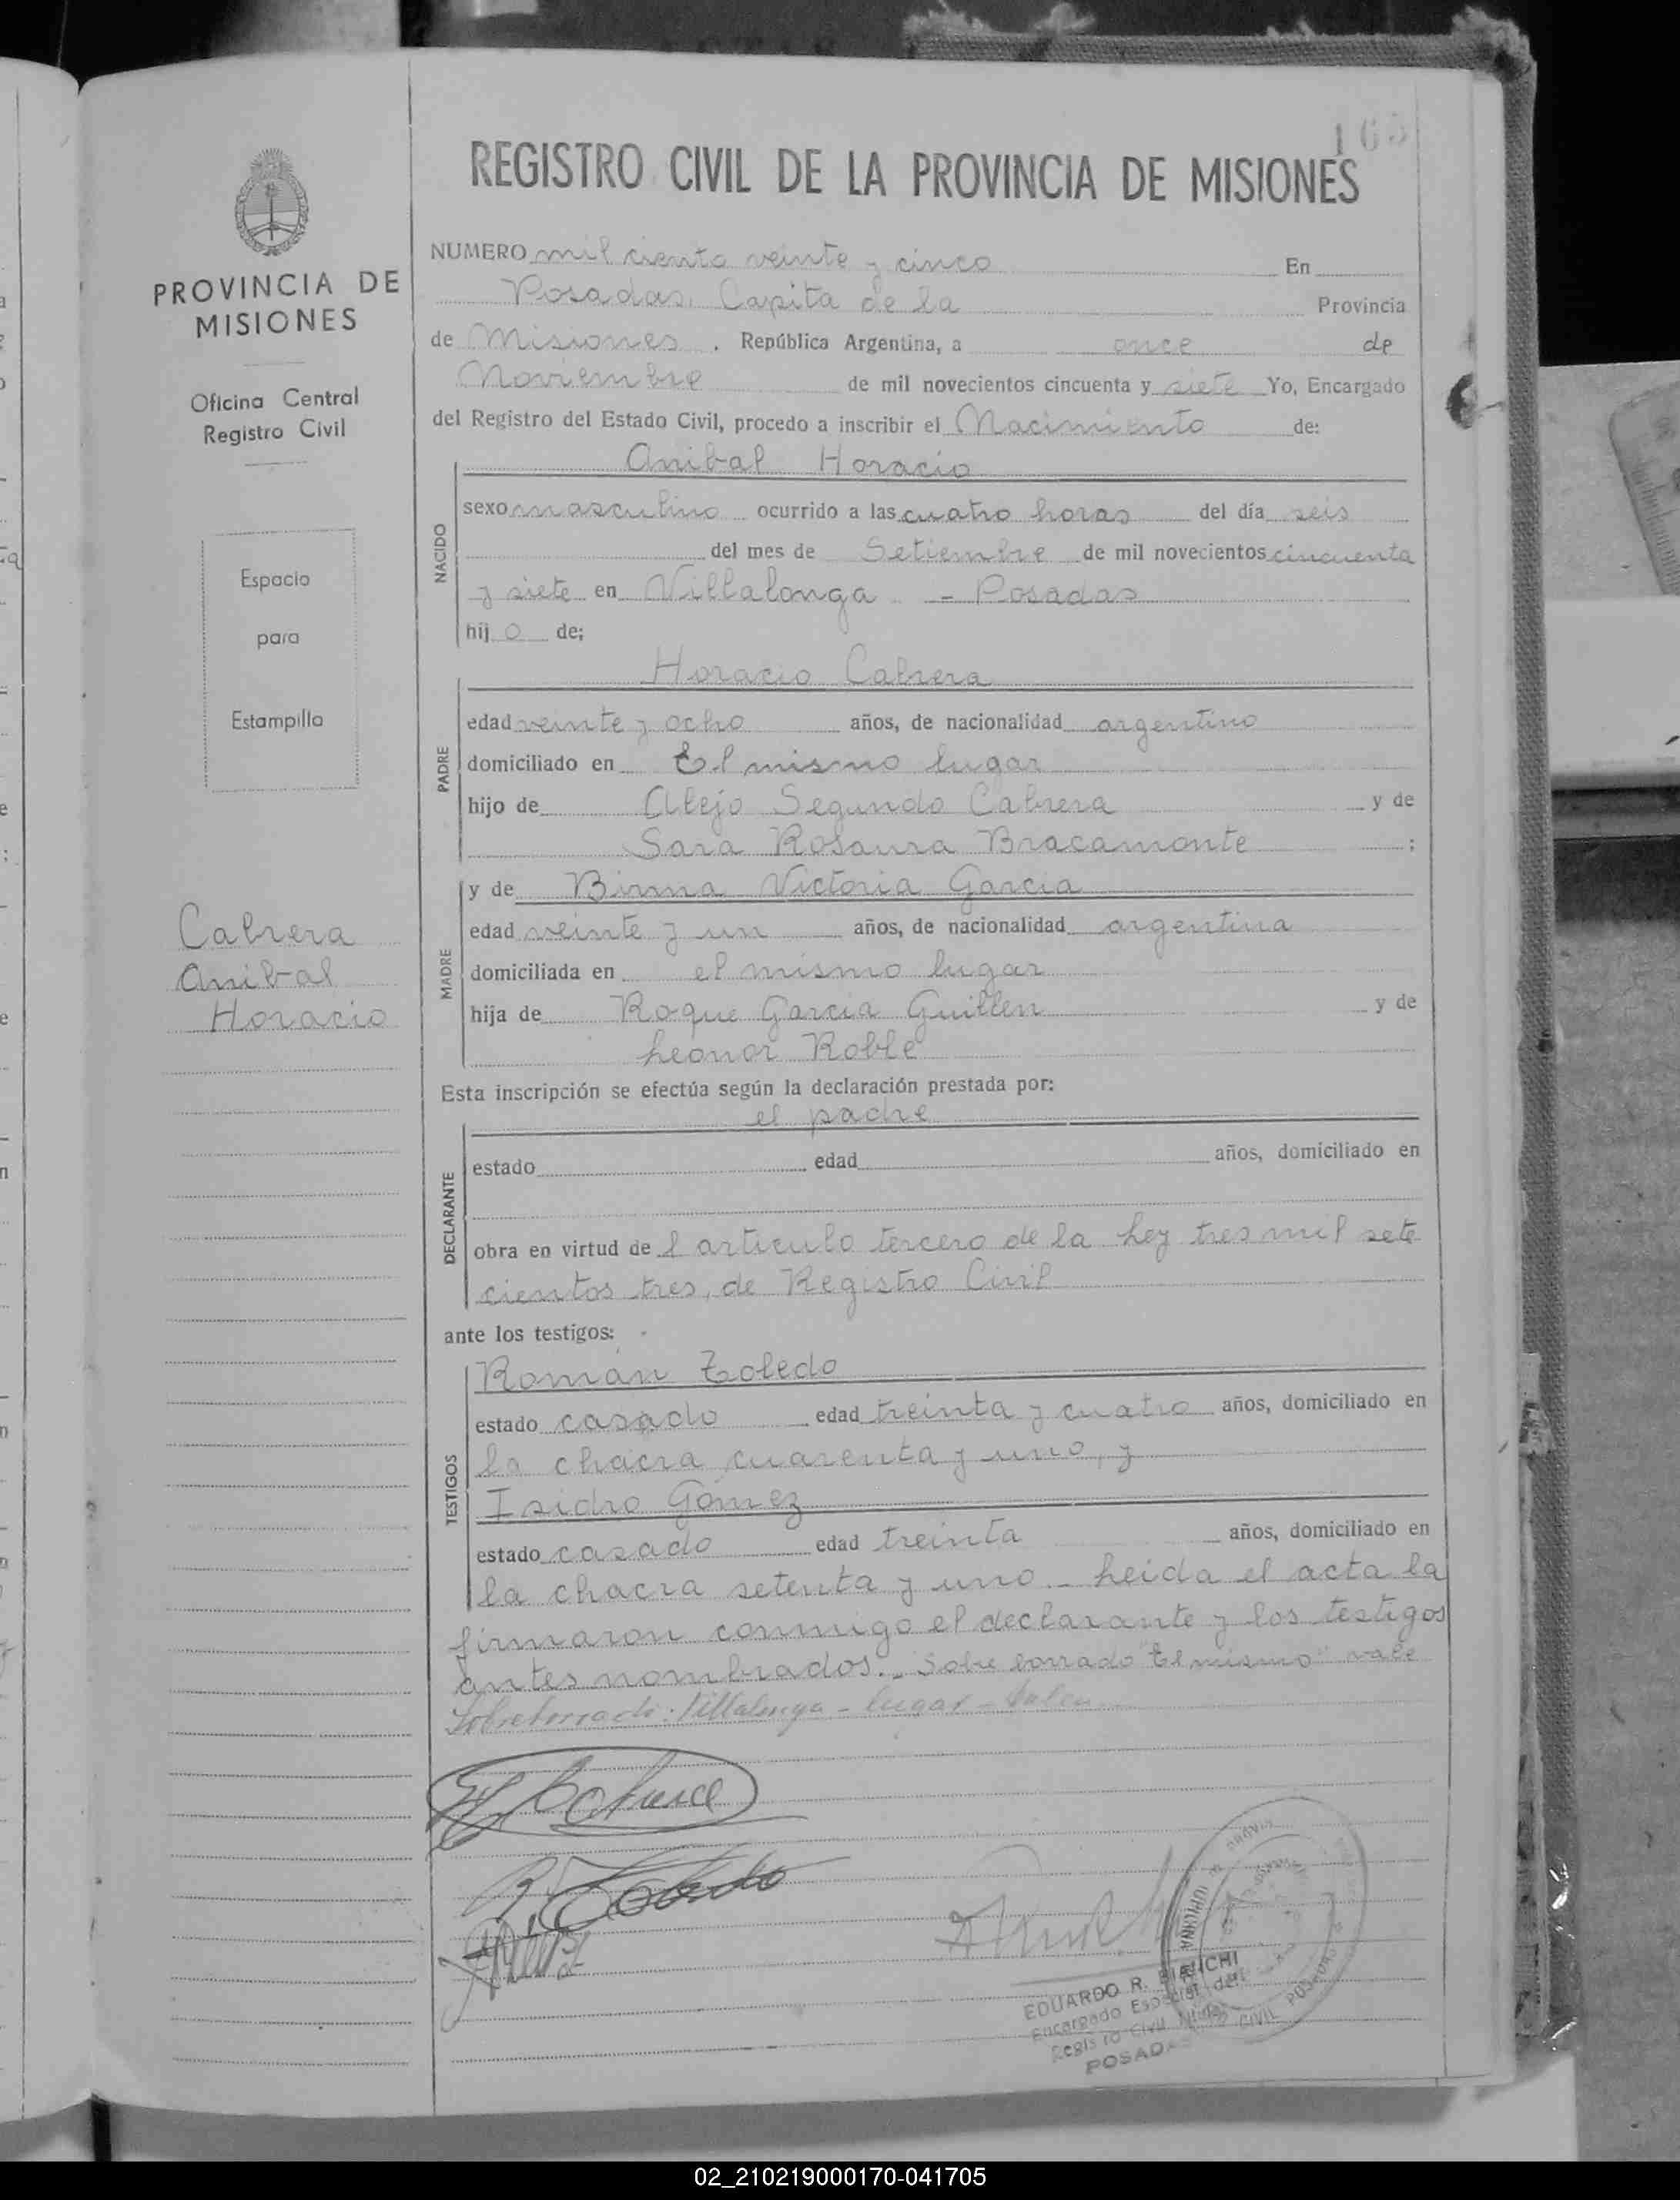 165
REGISTRO CIVIL DE LA PROVINCIA DE MISIONES
PROVINCIA DE
MISIONES
Oficina Central
Registro Civil
Espacio
para
Estampilla
Cabrera
Anibal
Horacio
NUMERO mil ciento veinte y cinco En
Posadas, Capita de la Provincia
de Misiones . República Argentina, a once de
Noviembre de mil novecientos cincuenta y siete Yo, Encargado
del Registro del Estado Civil, procedo a inscribir el Nacimiento de:
Anibal Horacio
NACIDO
sexo masculino ocurrido a las cuatro horas del día seis
del mes de Setiembre de mil novecientos cincuenta
y siete en Villalonga - Posadas
hij o de;
Horacio Cabrera
PADRE
edad veinte y ocho años, de nacionalidad argentino
domiciliado en El mismo lugar
hijo de Alejo Segundo Cabrera y de
Sara Rosaura Bracamonte ;
y de Birma Victoria Garcia
MADRE
edad veinte y un años, de nacionalidad argentina
domiciliada en el mismo lugar
hija de Roque Garcia Guillen y de
Leonor Roble
Esta inscripción se efectúa según la declaración prestada por:
el padre
DECLARANTE
estado edad años, domiciliado en
obra en virtud de l articulo tercero de la Ley tres mil sete
cientos tres, de Registro Civil
ante los testigos:
Román Toledo
TESTIGOS
estado casado edad treinta y cuatro años, domiciliado en
la chacra cuarenta y uno, y
Isidro Gómez
estado casado edad treinta años, domiciliado en
la chacra setenta y uno - Leida el acta la
firmaron conmigo el declarante y los testigos
antes nombrados.- Sobre borrado "El mismo" vale
Sobreborrado: Villalonga - lugar - Valen
H. Cabrera
R. Toledo
EDUARDO R. BIANCHI
Encargado Especial del
Registro Civil
POSADAS
CIVIL POSADAS
02_210219000170-041705